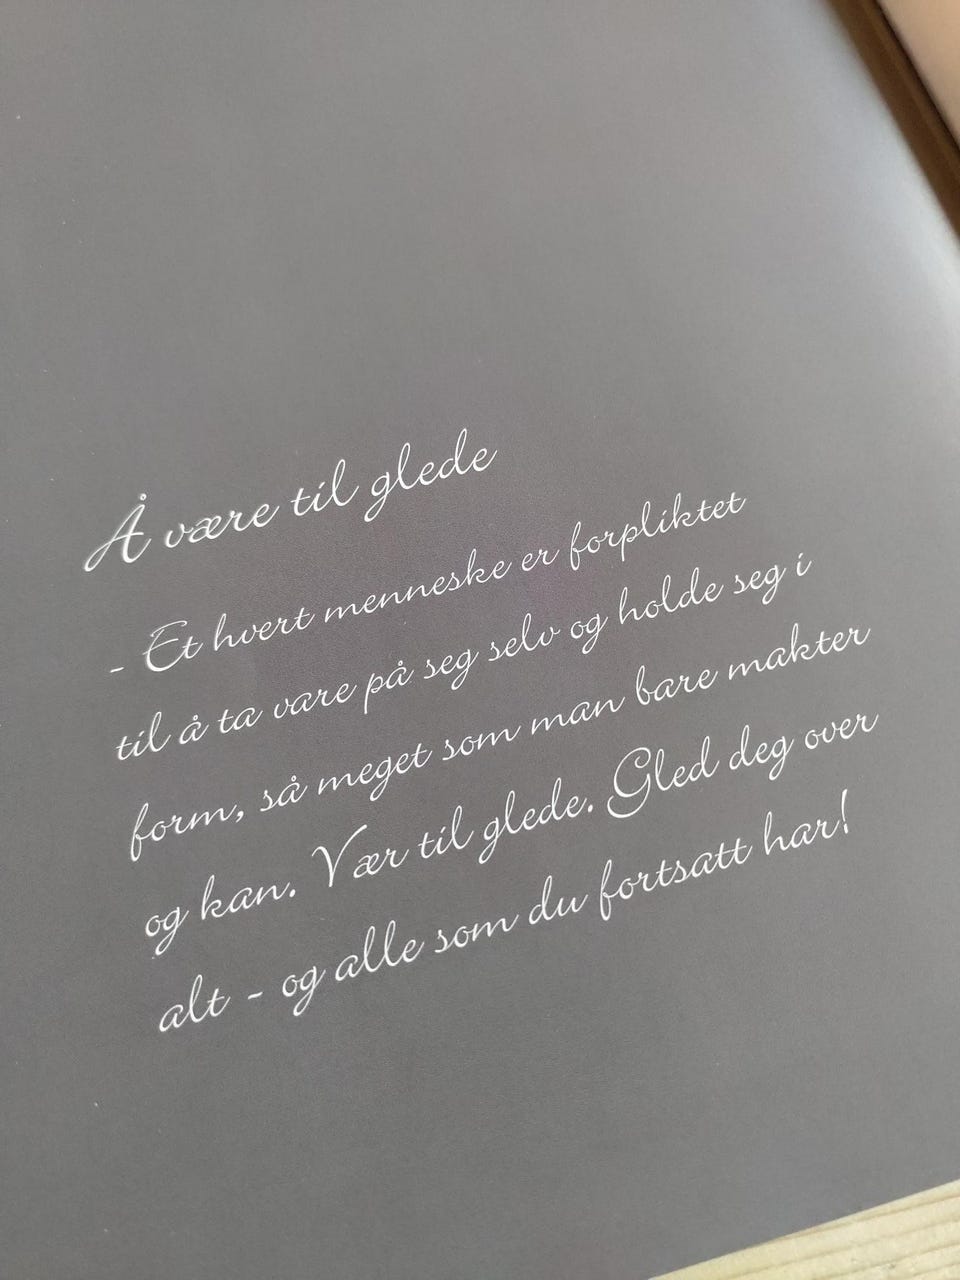 Å være til glede
- Et hvert menneske er forpliktet
til å ta vare på seg selv og holde seg i
form, så meget som man bare makter
og kan. Vær til glede. Gled deg over
alt - og alle som du fortsatt har!